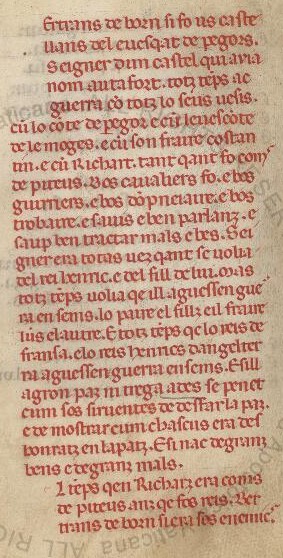 Ertrans de born si fo us caste
llans del euesqat de pegors.
Seigner dun castel qui auia
nom autafort. totz tẽps ac
guerra cõ totz lo seus uesis.
cũ lo cõte de pegorc e cũ leuescõte
de lemoges. e cũ son fraire costan
tin. e cũ Richart. tant qant fo com
de piteus. Bos caualiers fo. e bos
guirriers. e bos dõpneiaire. e bos
trobaire. e sauis e ben parlanz. e
saup ben tractar mals e bes. Sei
gner era totas uez qant se uolia
del rei henric. e del fill de lui. mas
totz tẽps uolia qe ill aguessen gue
ra en sems. lo paire el fillz eil fraire
lus el autre. E totz tẽps qe lo reis de
fransa. e lo reis henrics dangelter
ra aguessen guerra en sems. E sill
agron paz ni trega ades se penet
cum sos siruentes de desfar la paz.
e de mostrar cum chascus era des
honratz en la patz. E si nac de granz
bens e de granz mals.
l tẽps qen Richartz era coms
de piteus anz qe fos reis. Ber
trans de born si era sos enemic.